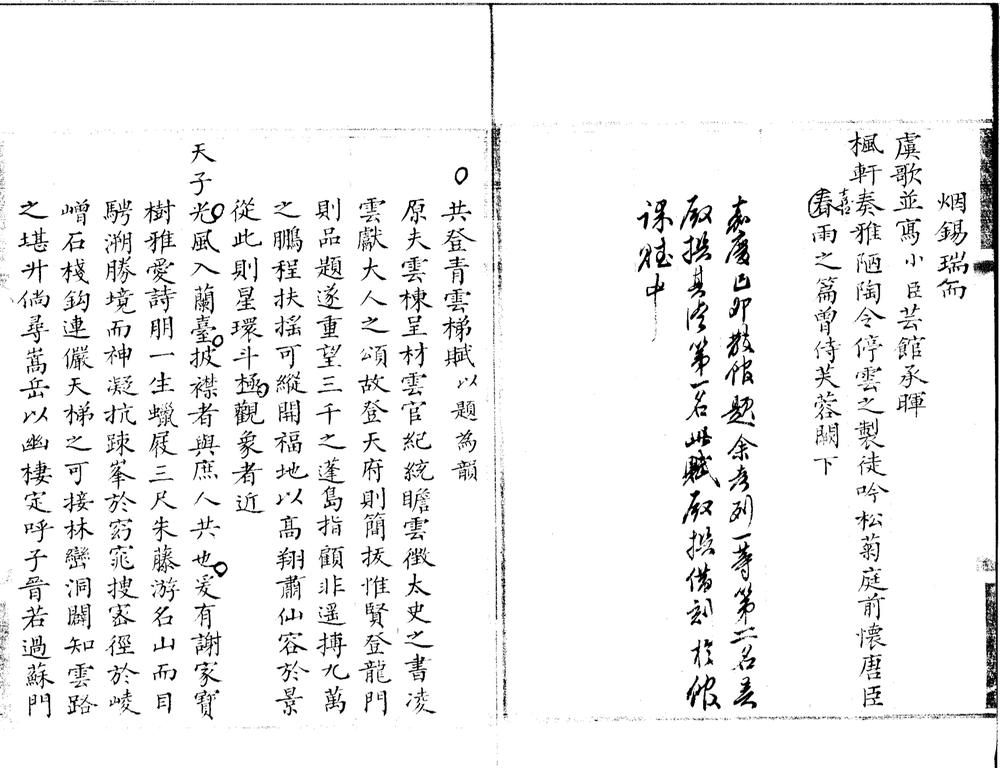 烟錫瑞而
虞歌並寫小臣芸館承暉
楓軒奏雅陋陶令停雲之製徒吟松菊庭前懷唐臣
喜春雨之篇曾侍芙蓉闕下
嘉慶己卯散館題余考列一等第二名吳
殿撰其濬第一名此賦殿撰借刻於館
課賦中
共登青雲梯賦以題為韻
原夫雲棟呈材雲官紀統瞻雲徵太史之書凌
雲獻大人之頌故登天府則簡拔惟賢登龍門
則品題遂重望三千之蓬島指顧非遥摶九萬
之鵬程扶搖可縱開福地以高翔肅仙容於景
從此則星環斗極觀象者近
天子光風入蘭臺披襟者與庶人共也爰有謝家寶
樹雅愛詩朋一生蠟屐三尺朱藤游名山而目
騁溯勝境而神凝抗疎峯於窈窕搜密徑於崚
嶒石棧鈎連儼天梯之可接林巒洞闢知雲路
之堪升倘尋嵩岳以幽棲定呼子晉若過蘇門